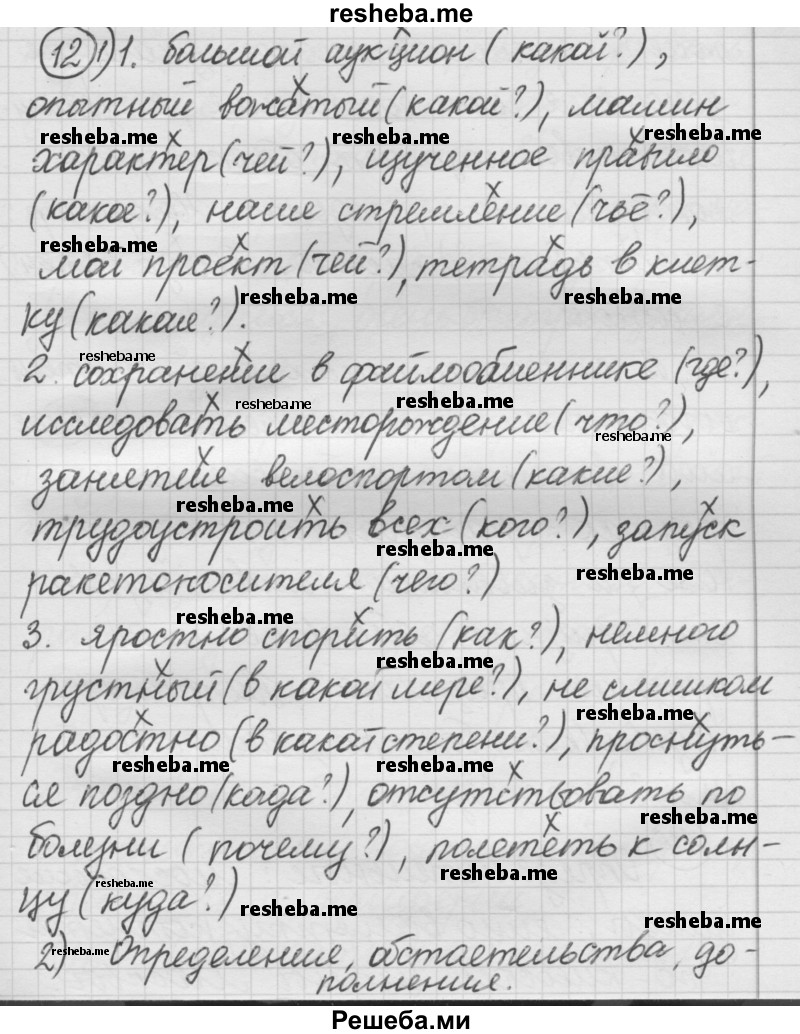 resheba.me
12 1) 1. большой аукцион (какой?),
опытный вожатый (какой?), мамин
resheba.me resheba.me resheba.me
характер (чей?), изученное правило
(какое?), наше стремление (чьё?),
мой проект (чей?), тетрадь в клет-
resheba.me resheba.me
ку (какая?).
resheba.me
2. сохранение в файлообменнике (где?),
resheba.me resheba.me
исследовать месторождение (что?),
resheba.me
занятия велоспортом (какие?),
resheba.me
трудоустроить всех (кого?), запуск
resheba.me
ракетоносителя (чего?)
resheba.me
resheba.me
3. яростно спорить (как?), немного
resheba.me
грустный (в какой мере?), не слишком
resheba.me
радостно (в какой степени?), проснуть-
resheba.me resheba.me
ся поздно (када?), отсутствовать по
болезни (почему?), полететь к солн-
resheba.me resheba.me
цу (куда?)
resheba.me resheba.me
resheba.me
2) Определения, обстаетельства, до-
полнения.
Решеба.ми